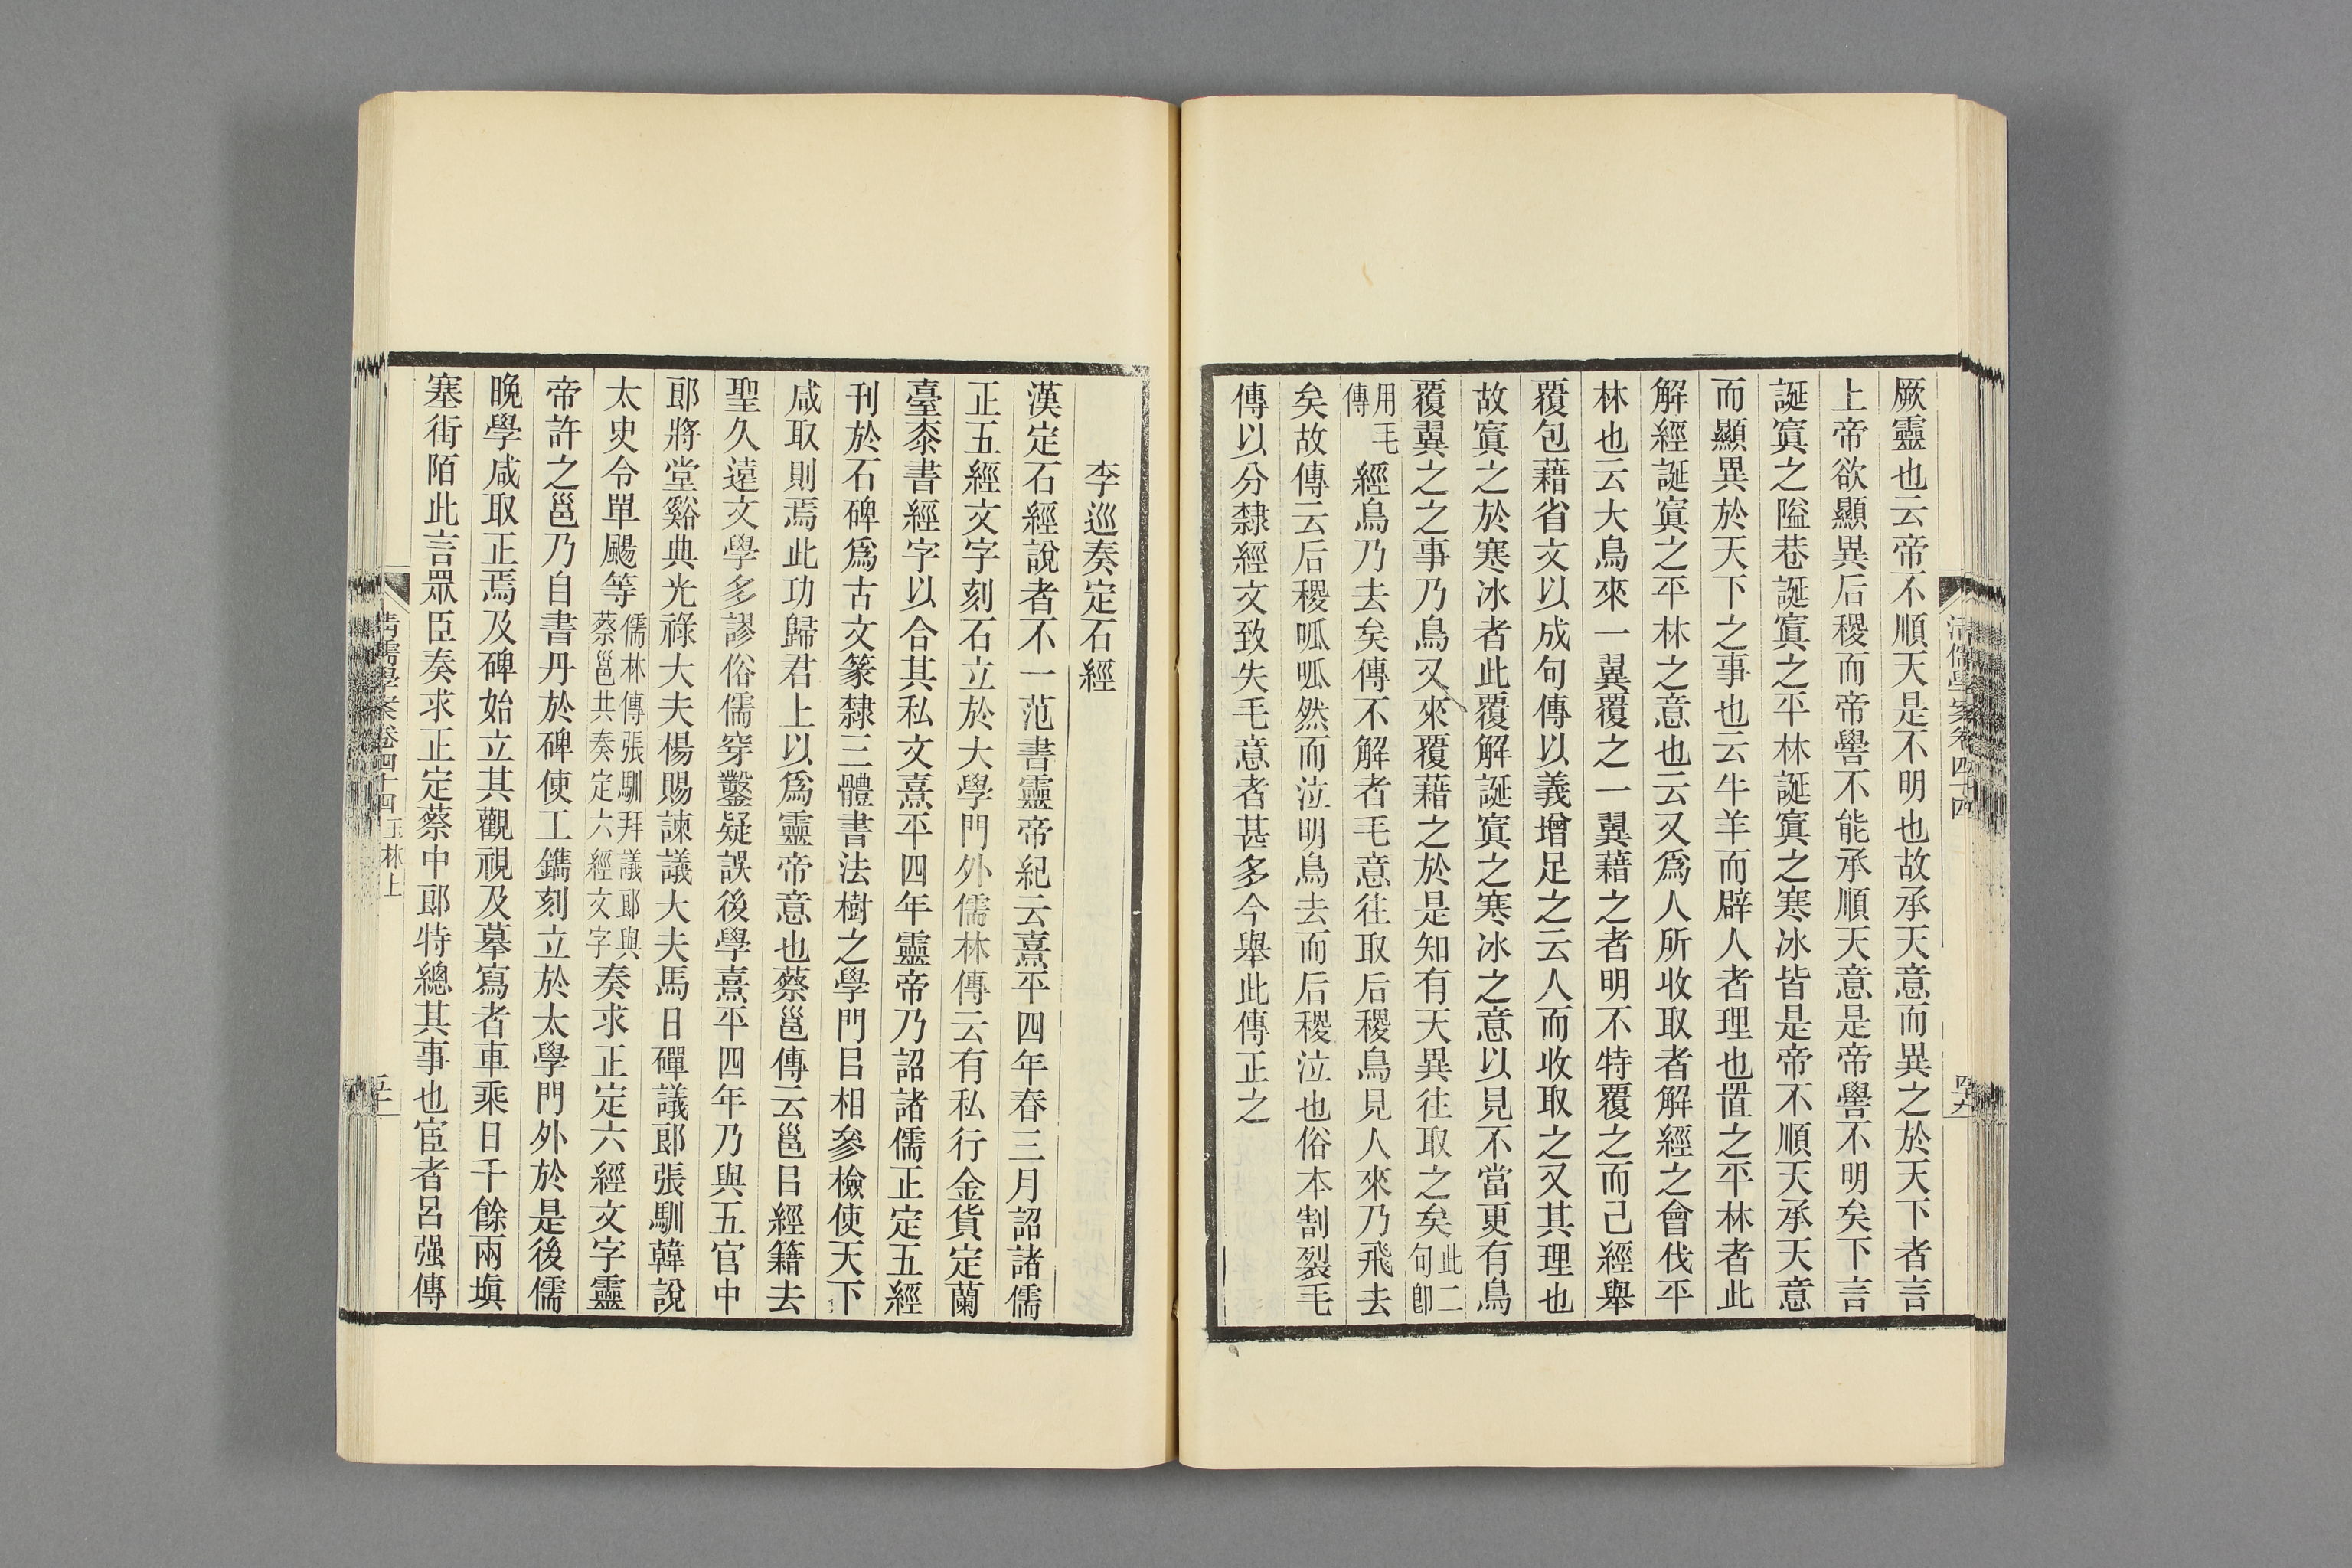 厥靈也云帝不順天是不明也故承天意而異之於天下者言
上帝欲顯異后稷而帝嚳不能承順天意是帝嚳不明矣下言
誕寘之隘巷誕寘之平林誕寘之寒冰皆是帝不順天承天意
而顯異於天下之事也云牛羊而辟人者理也置之平林者此
解經誕寘之平林之意也云又爲人所收取者解經之會伐平
林也云大鳥來一翼覆之一翼藉之者明不特覆之而己經舉
覆包藉省文以成句傳以義增足之云人而收取之又其理也
故寘之於寒冰者此覆解誕寘之寒冰之意以見不當更有鳥
覆翼之之事乃鳥又來覆藉之於是知有天異往取之矣此二句卽
用毛傳經鳥乃去矣傳不解者毛意往取后稷鳥見人來乃飛去
矣故傳云后稷呱呱然而泣明鳥去而后稷泣也俗本割裂毛
傳以分隸經文致失毛意者甚多今舉此傳正之
李巡奏定石經
漢定石經說者不一范書靈帝紀云熹平四年春三月詔諸儒
正五經文字刻石立於大學門外儒林傳云有私行金貨定蘭
臺桼書經字以合其私文熹平四年靈帝乃詔諸儒正定五經
刊於石碑爲古文篆隸三體書法樹之學門㠯相參檢使天下
咸取則焉此功歸君上以爲靈帝意也蔡邕傳云邕㠯經籍去
聖久遠文學多謬俗儒穿鑿疑誤後學熹平四年乃與五官中
郎將堂谿典光祿大夫楊賜諫議大夫馬日磾議郎張馴韓說
太史令單颺等儒林傳張馴拜議郎與蔡邕共奏定六經文字奏求正定六經文字靈
帝許之邕乃自書丹於碑使工鐫刻立於太學門外於是後儒
晚學咸取正焉及碑始立其觀視及摹寫者車乘日千餘兩塡
塞街陌此言眾臣奏求正定蔡中郎特總其事也宦者呂强傳